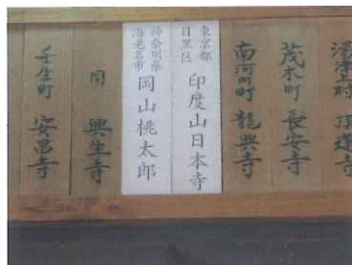 頂蓮寺
茂木町 長安寺
南河内町 龍興寺
東京都
目黒区
印度山日本寺
神奈川県
海老名市
岡山桃太郎
同 興生寺
壬生町 安昌寺